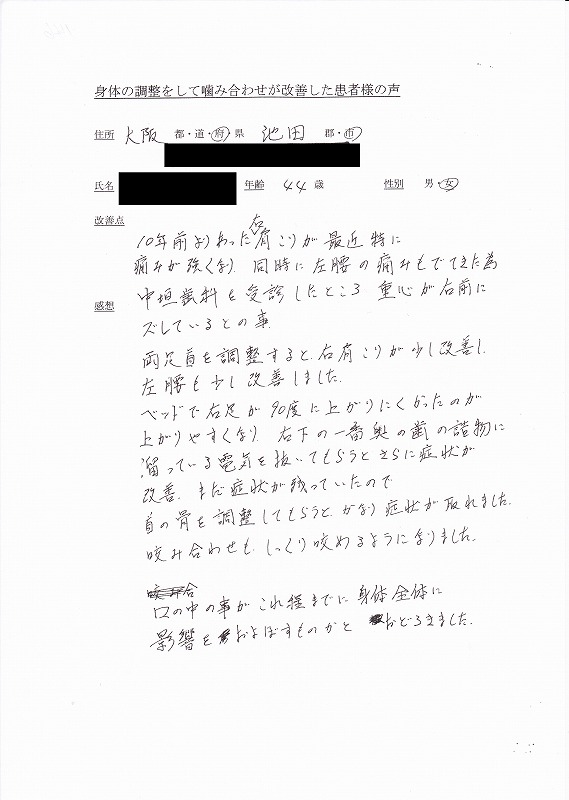 身体の調整をして噛み合わせが改善した患者様の声
住所 大阪 都・道・府・県 池田 郡・市
氏名 年齢 44歳 性別 男・女
改善点
10年前よりあった右肩こりが最近特に
痛みが強くなり、同時に左腰の痛みもでてきた為
中垣歯科を受診したところ 重心が右前に
感想
ズレているとの事。
両足首を調整すると、右肩こりが少し改善し、
左腰も少し改善しました。
ベッドで右足が90度に上がりにくかったのが
上がりやすくなり、右下の一番奥の歯の詰物に
溜っている電気を抜いてもらうとさらに症状が
改善。まだ症状が残っていたので
首の骨を調整してもらうと、かなり症状が取れました。
咬み合わせも、しっくり咬めるようになりました。
口の中の事がこれ程までに身体全体に
影響をおよぼすものかと おどろきました。